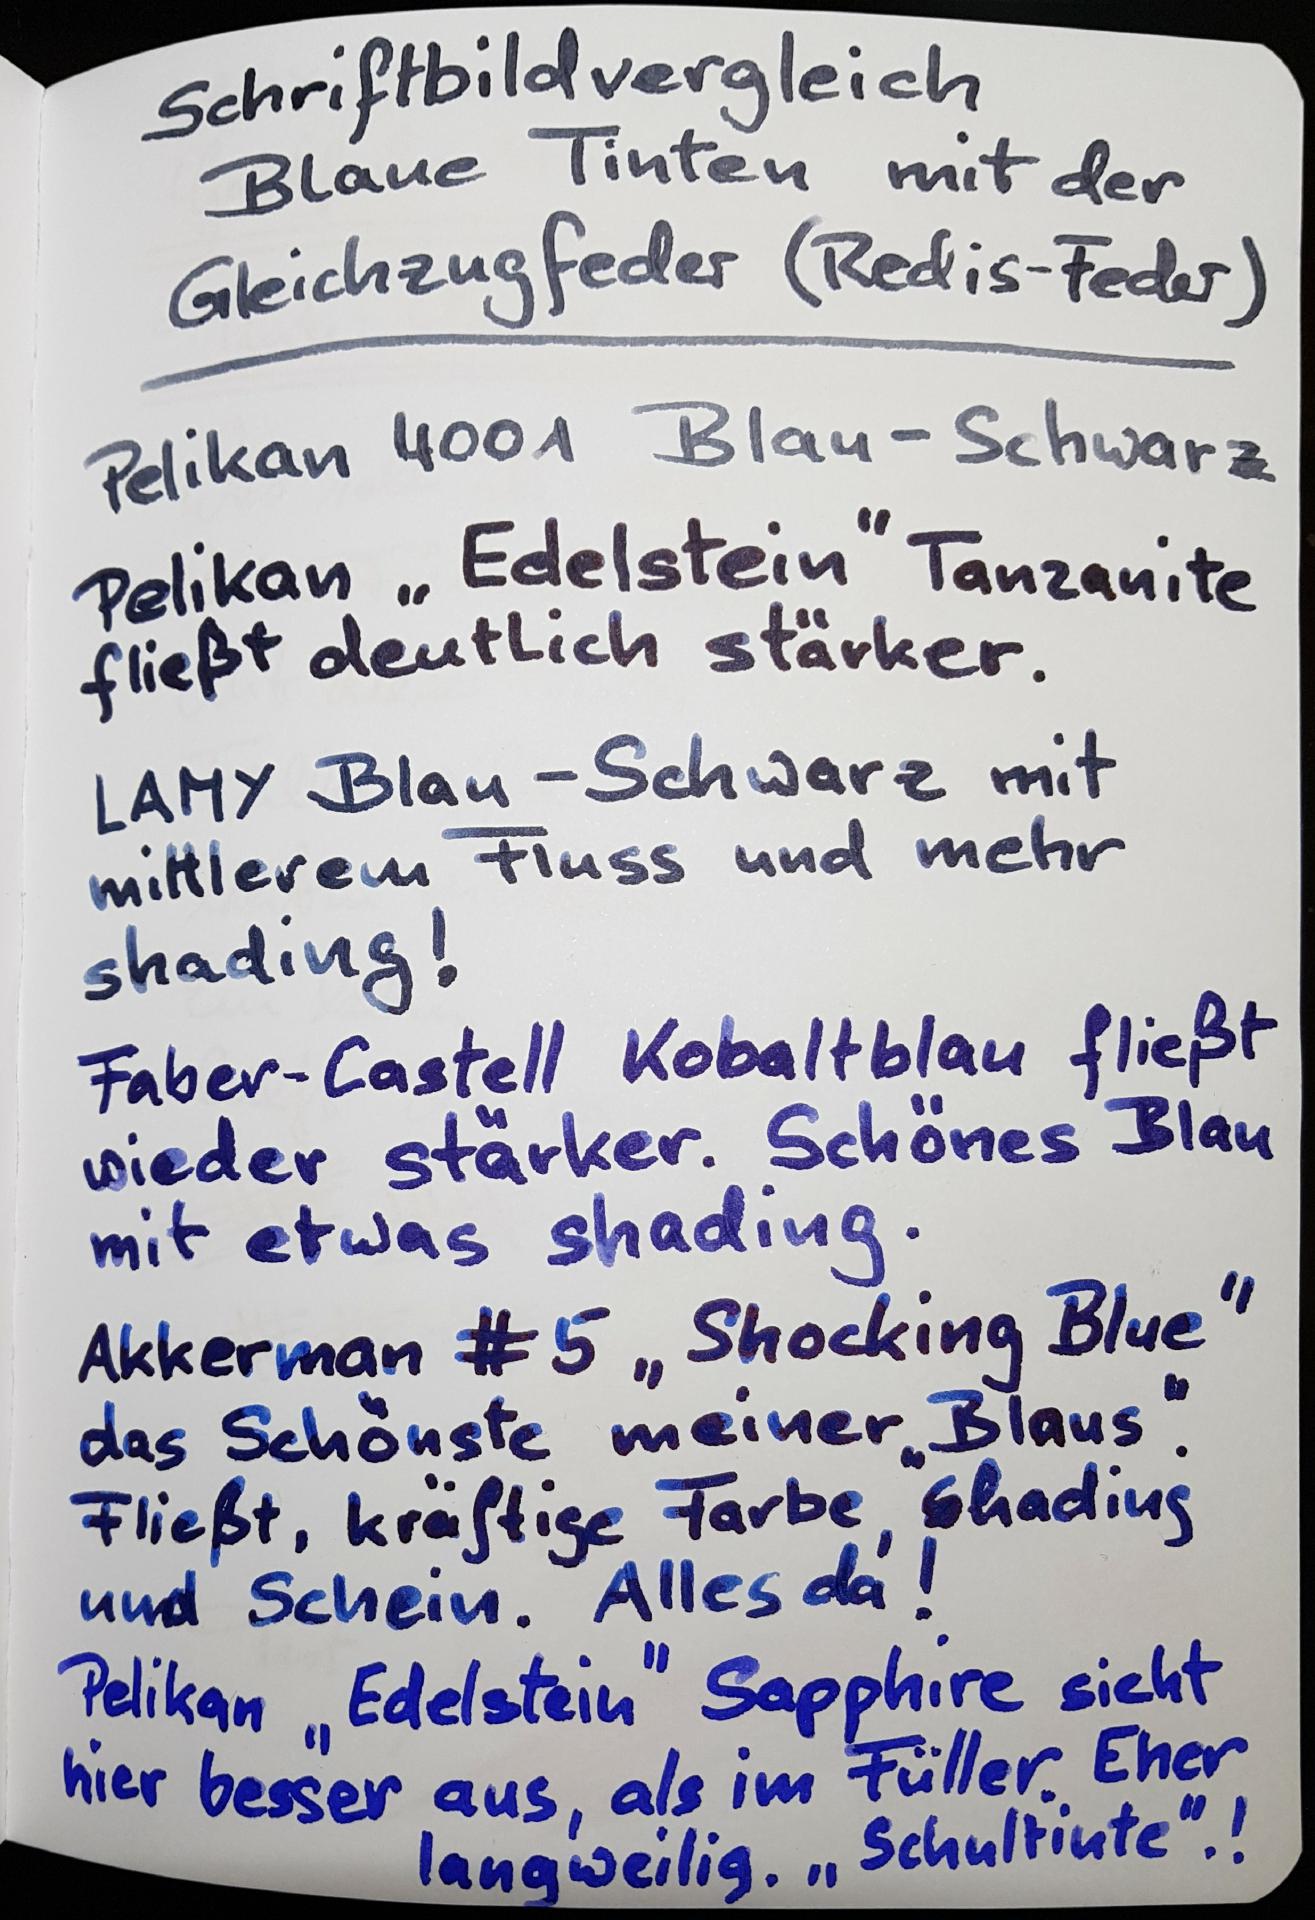 Schriftbildvergleich
Blaue Tinten mit der
Gleichzugfeder (Redis-Feder)
Pelikan 4001 Blau-Schwarz
Pelikan „Edelstein" Tanzanite
fließt deutlich stärker.
LAMY Blau-Schwarz mit
mittlerem Fluss und mehr
shading!
Faber-Castell Kobaltblau fließt
wieder stärker. Schönes Blau
mit etwas shading.
Akkerman #5 „Shocking Blue"
das Schönste meiner „Blaus".
Fließt, kräftige Farbe, shading
und Schein. Alles da!
Pelikan „Edelstein" Sapphire sieht
hier besser aus, als im Füller. Eher
langweilig. „Schultinte".!